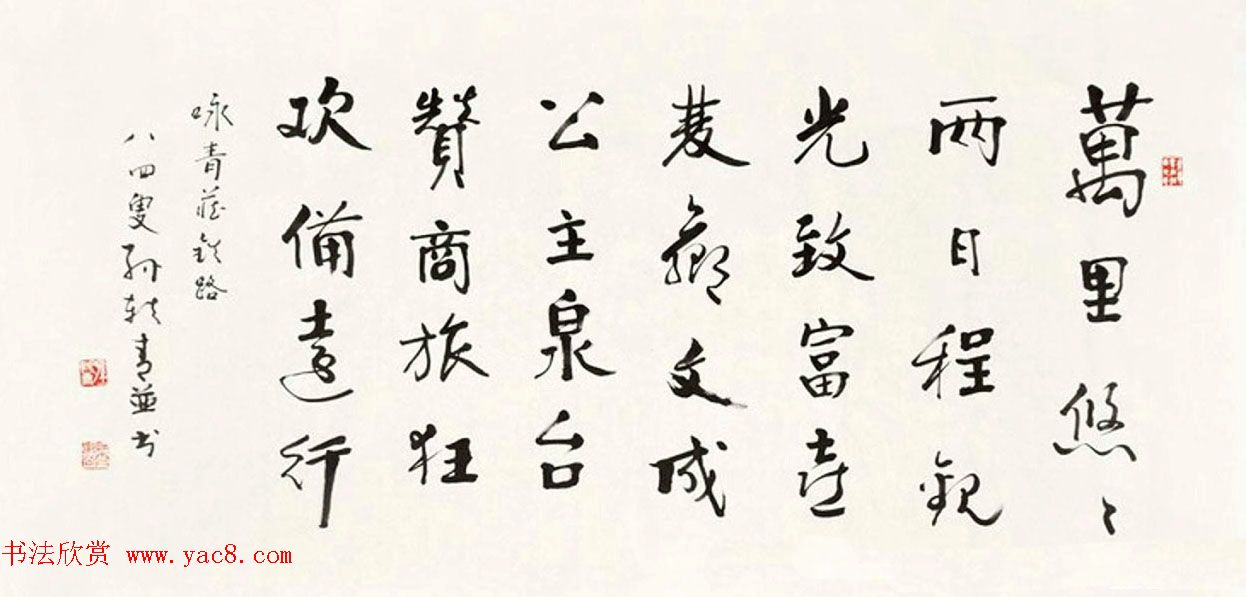 萬里悠〻
两日程觀
光致富喜
雙贏文成
公主泉台
贊商旅狂
欢備遠行
咏青藏鉄路
八四叟孙轶青並书
书法欣赏 www.yac8.com